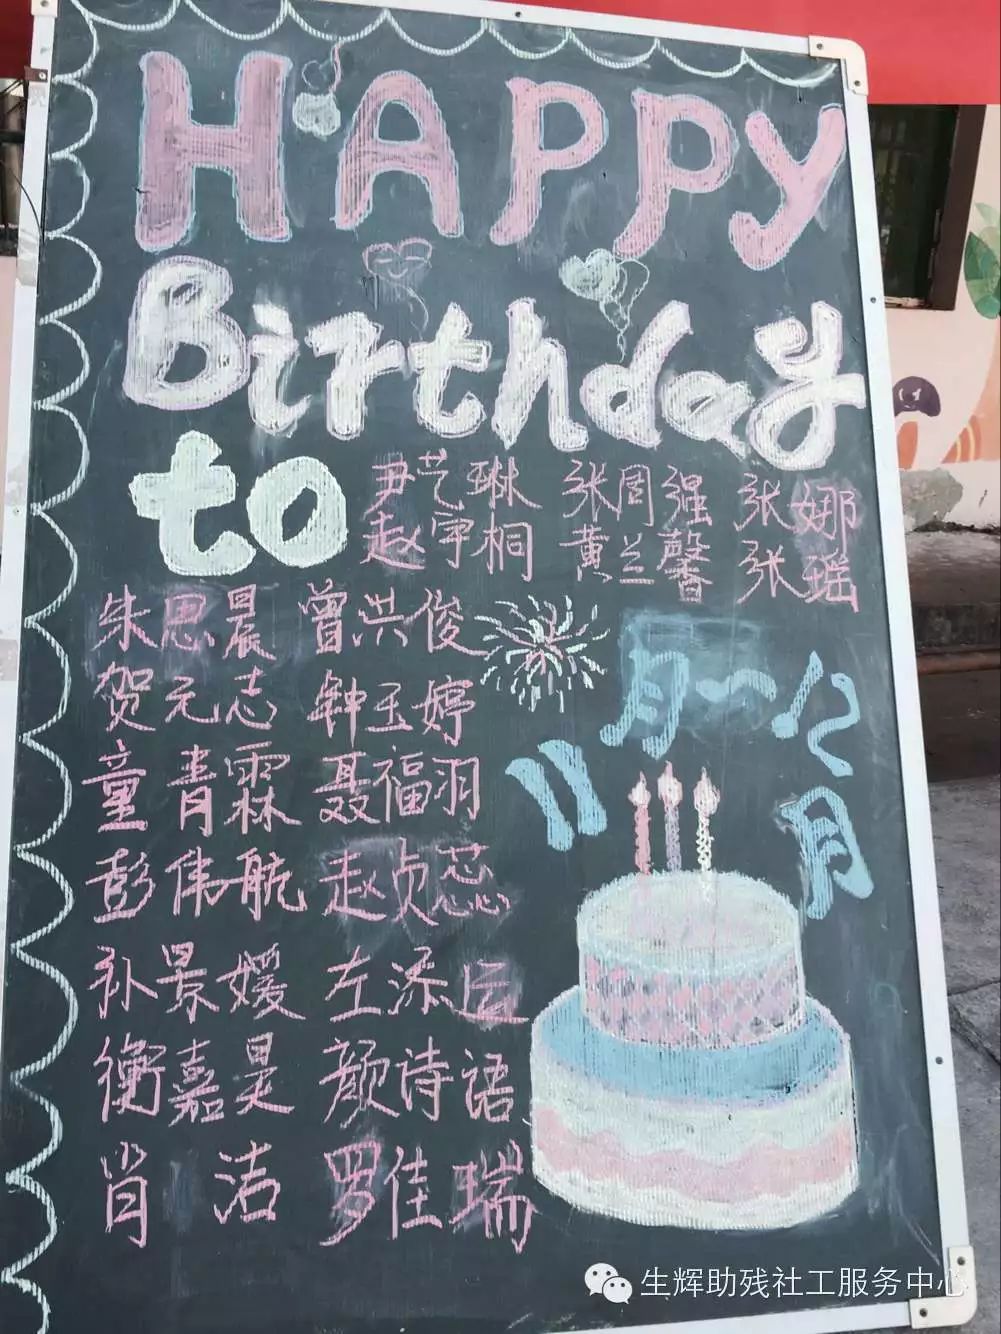 HAppy
Birthday
to
尹艺琳 张周强 张娜
赵宇桐 黄兰馨 张瑶
朱思晨 曾洪俊
贺元志 钟玉婷
童青霖 聂福羽
彭伟航 赵贞蕊
孙景媛 左添
衡嘉昊 颜诗语
肖洁 罗佳瑞
11月一12月
生辉助残社工服务中心